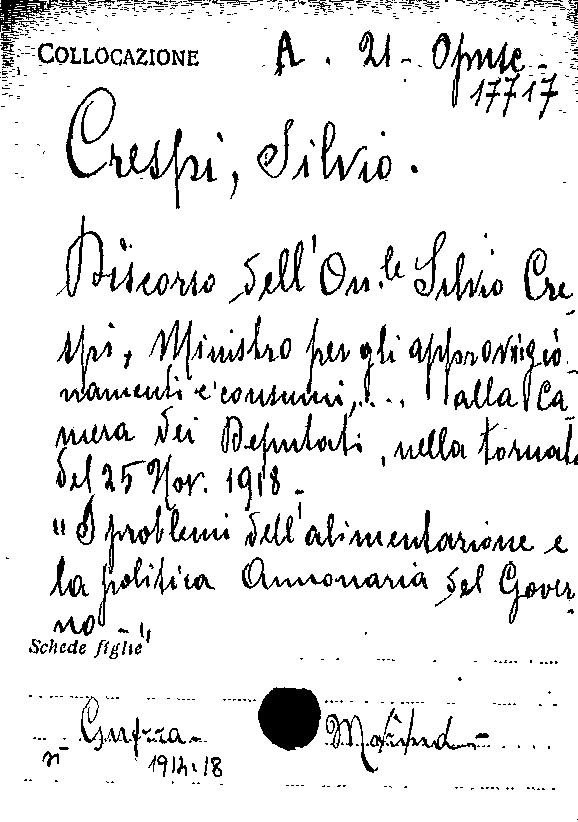 COLLOCAZIONE A. 21 - Opusc -
17717
Crespi, Silvio.
Discorso dell'On.le Silvio Cre-
spi, Ministro per gli approvigio-
namenti e consumi,... alla Ca-
mera dei Deputati, nella tornata
del 25 Nov. 1918 -
"I problemi dell'alimentazione e
la politica Annonaria del Gover-
no -"
Schede figlie
Guerra -
1914-18